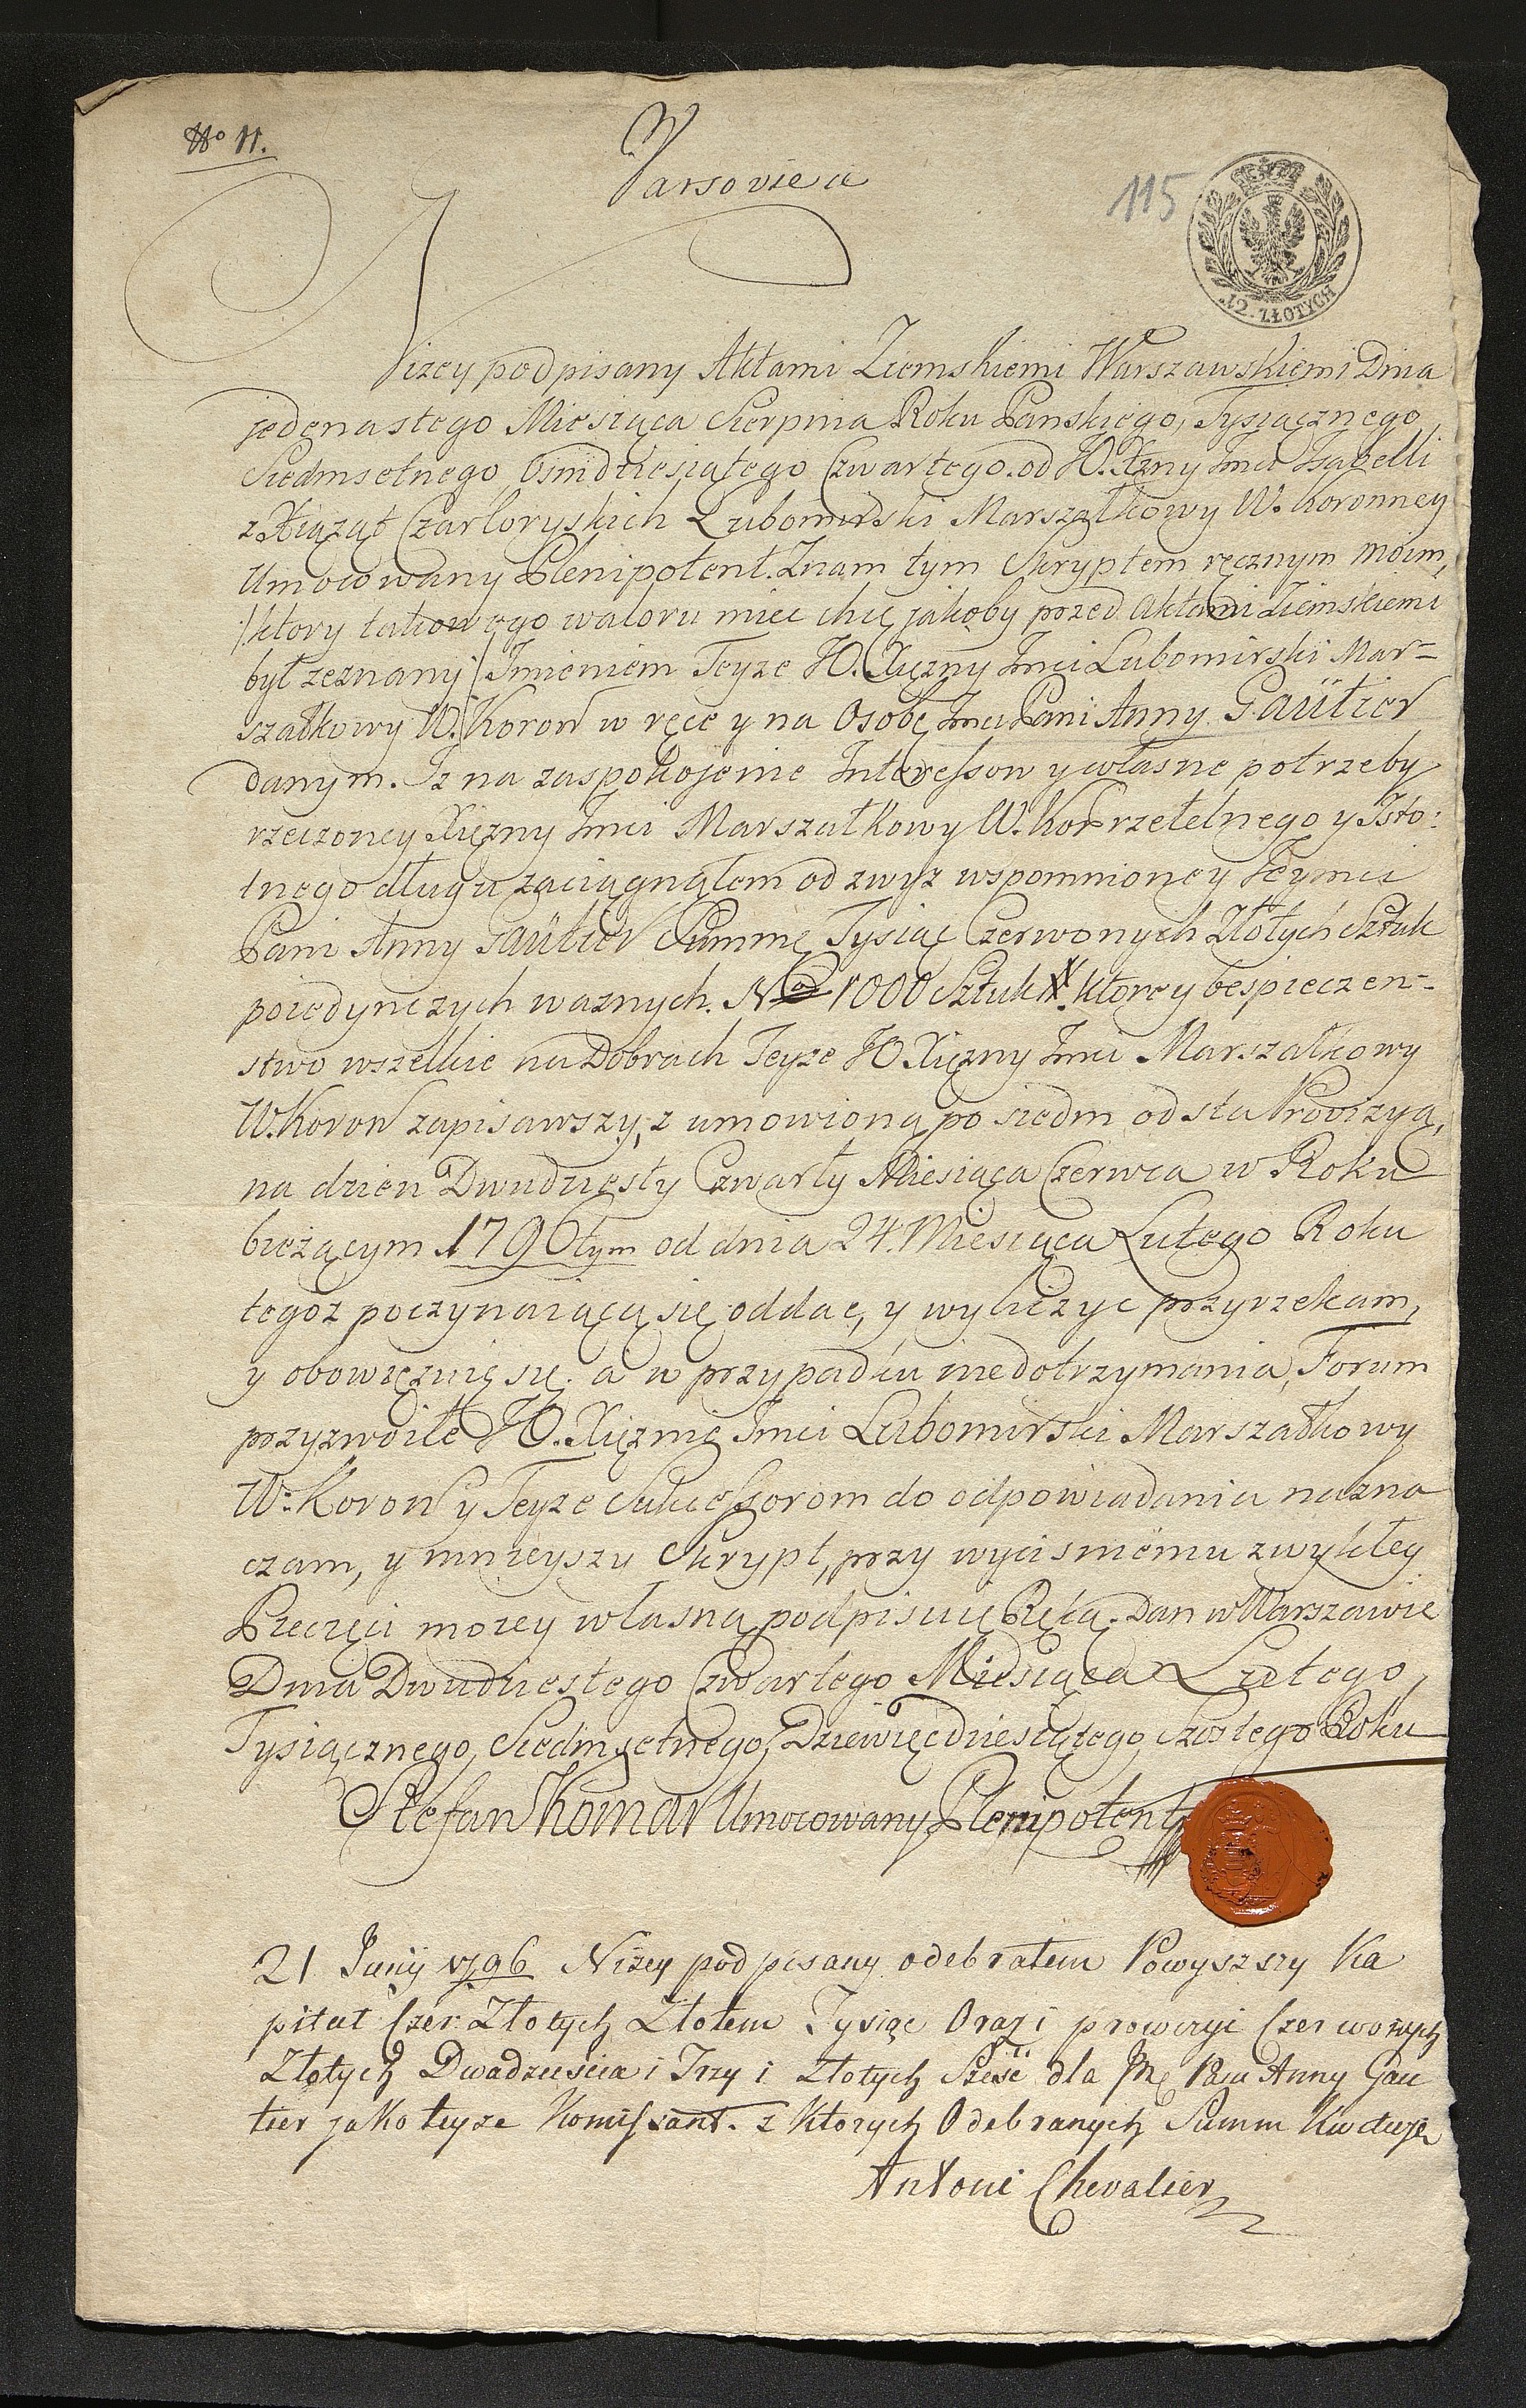 No 11.
Varsoviea
115
12. ZŁOTYCH
Niżey podpisany Aktami Ziemskiemi Warszawskiemi Dnia
jedenastego Miesiąca Sierpnia Roku Panskiego, Tysiącznego
Siedmsetnego Osmdziesiątego Czwartego. od JO. Xżny Jmci Izabelli
z Xiążąt Czartoryskich Lubomirski Marszałkowy W. Koronney
Umocowany Plenipotent. Znam tym Skryptem ręcznym moim,
/:ktory takowego waloru miec chcę jakoby przed Aktami Ziemskiemi
był zeznany:/ Imieniem Teyże JO. Xiężny Jmci Lubomirski Mar-
szałkowy W. Koron w ręce y na Osobę Jmci Pani Anny Gaütier
danym. Iż na zaspokojenie Interessow y własne potrzeby
rzeczoney Xiężny Jmci Marszałkowy W. Kor rzetelnego y Isto:
tnego długu zaciągnąłem od zwyż wspomnioney Jeymci
Pani Anny Gaütier Summę Tysiąc Czerwonych Złotych Sztuk
poiedynczych ważnych. No 1000 Sztuk #. ktorey bespieczen-
stwo wszelkie na Dobrach Teyże JO Xiężny Jmci Marszałkowy
W. Koron zapisawszy, z umowioną po siedm od sta Prowizyą,
na dzien Dwudziesty Czwarty Miesiąca Czerwca w Roku
bieżącym 1796tym od dnia 24. Miesiąca Lutego Roku
tegoż poczynaiącą się oddac, y wyliczyc przyrzekam,
y obowięzuię się. a w przypadku niedotrzymania, Forum
przyzwoite JO. Xiężnie Jmci Lubomirski Marszałkowy
W. Koron y Teyże Sukcessorom do odpowiadania nazna
czam, y ninieyszy Skrypt, przy wycisnieniu zwykłey
Pieczęci moiey własną podpisuię Ręką. Dan w Warszawie
Dnia Dwudziestego Czwartego Miesiąca Lutego,
Tysiącznego, Siedmsetnego, Dziewięcdziesiątego, Szostego Roku
Stefan Komar Umocowany Plenipotent
21 Junÿ 1796 Niżey podpisany odebrałem Powyższy Ka
pitał Czer: Złotych Złotem Tysiąc Oraz i prowizyi Czerwonych
Złotych Dwadzieścia i Trzy i Złotych Sześć dla Pani Anny Gau
tier jako teyże Komissant. z ktorych Odebranych Summ Kwituję
Antoni Chevalier